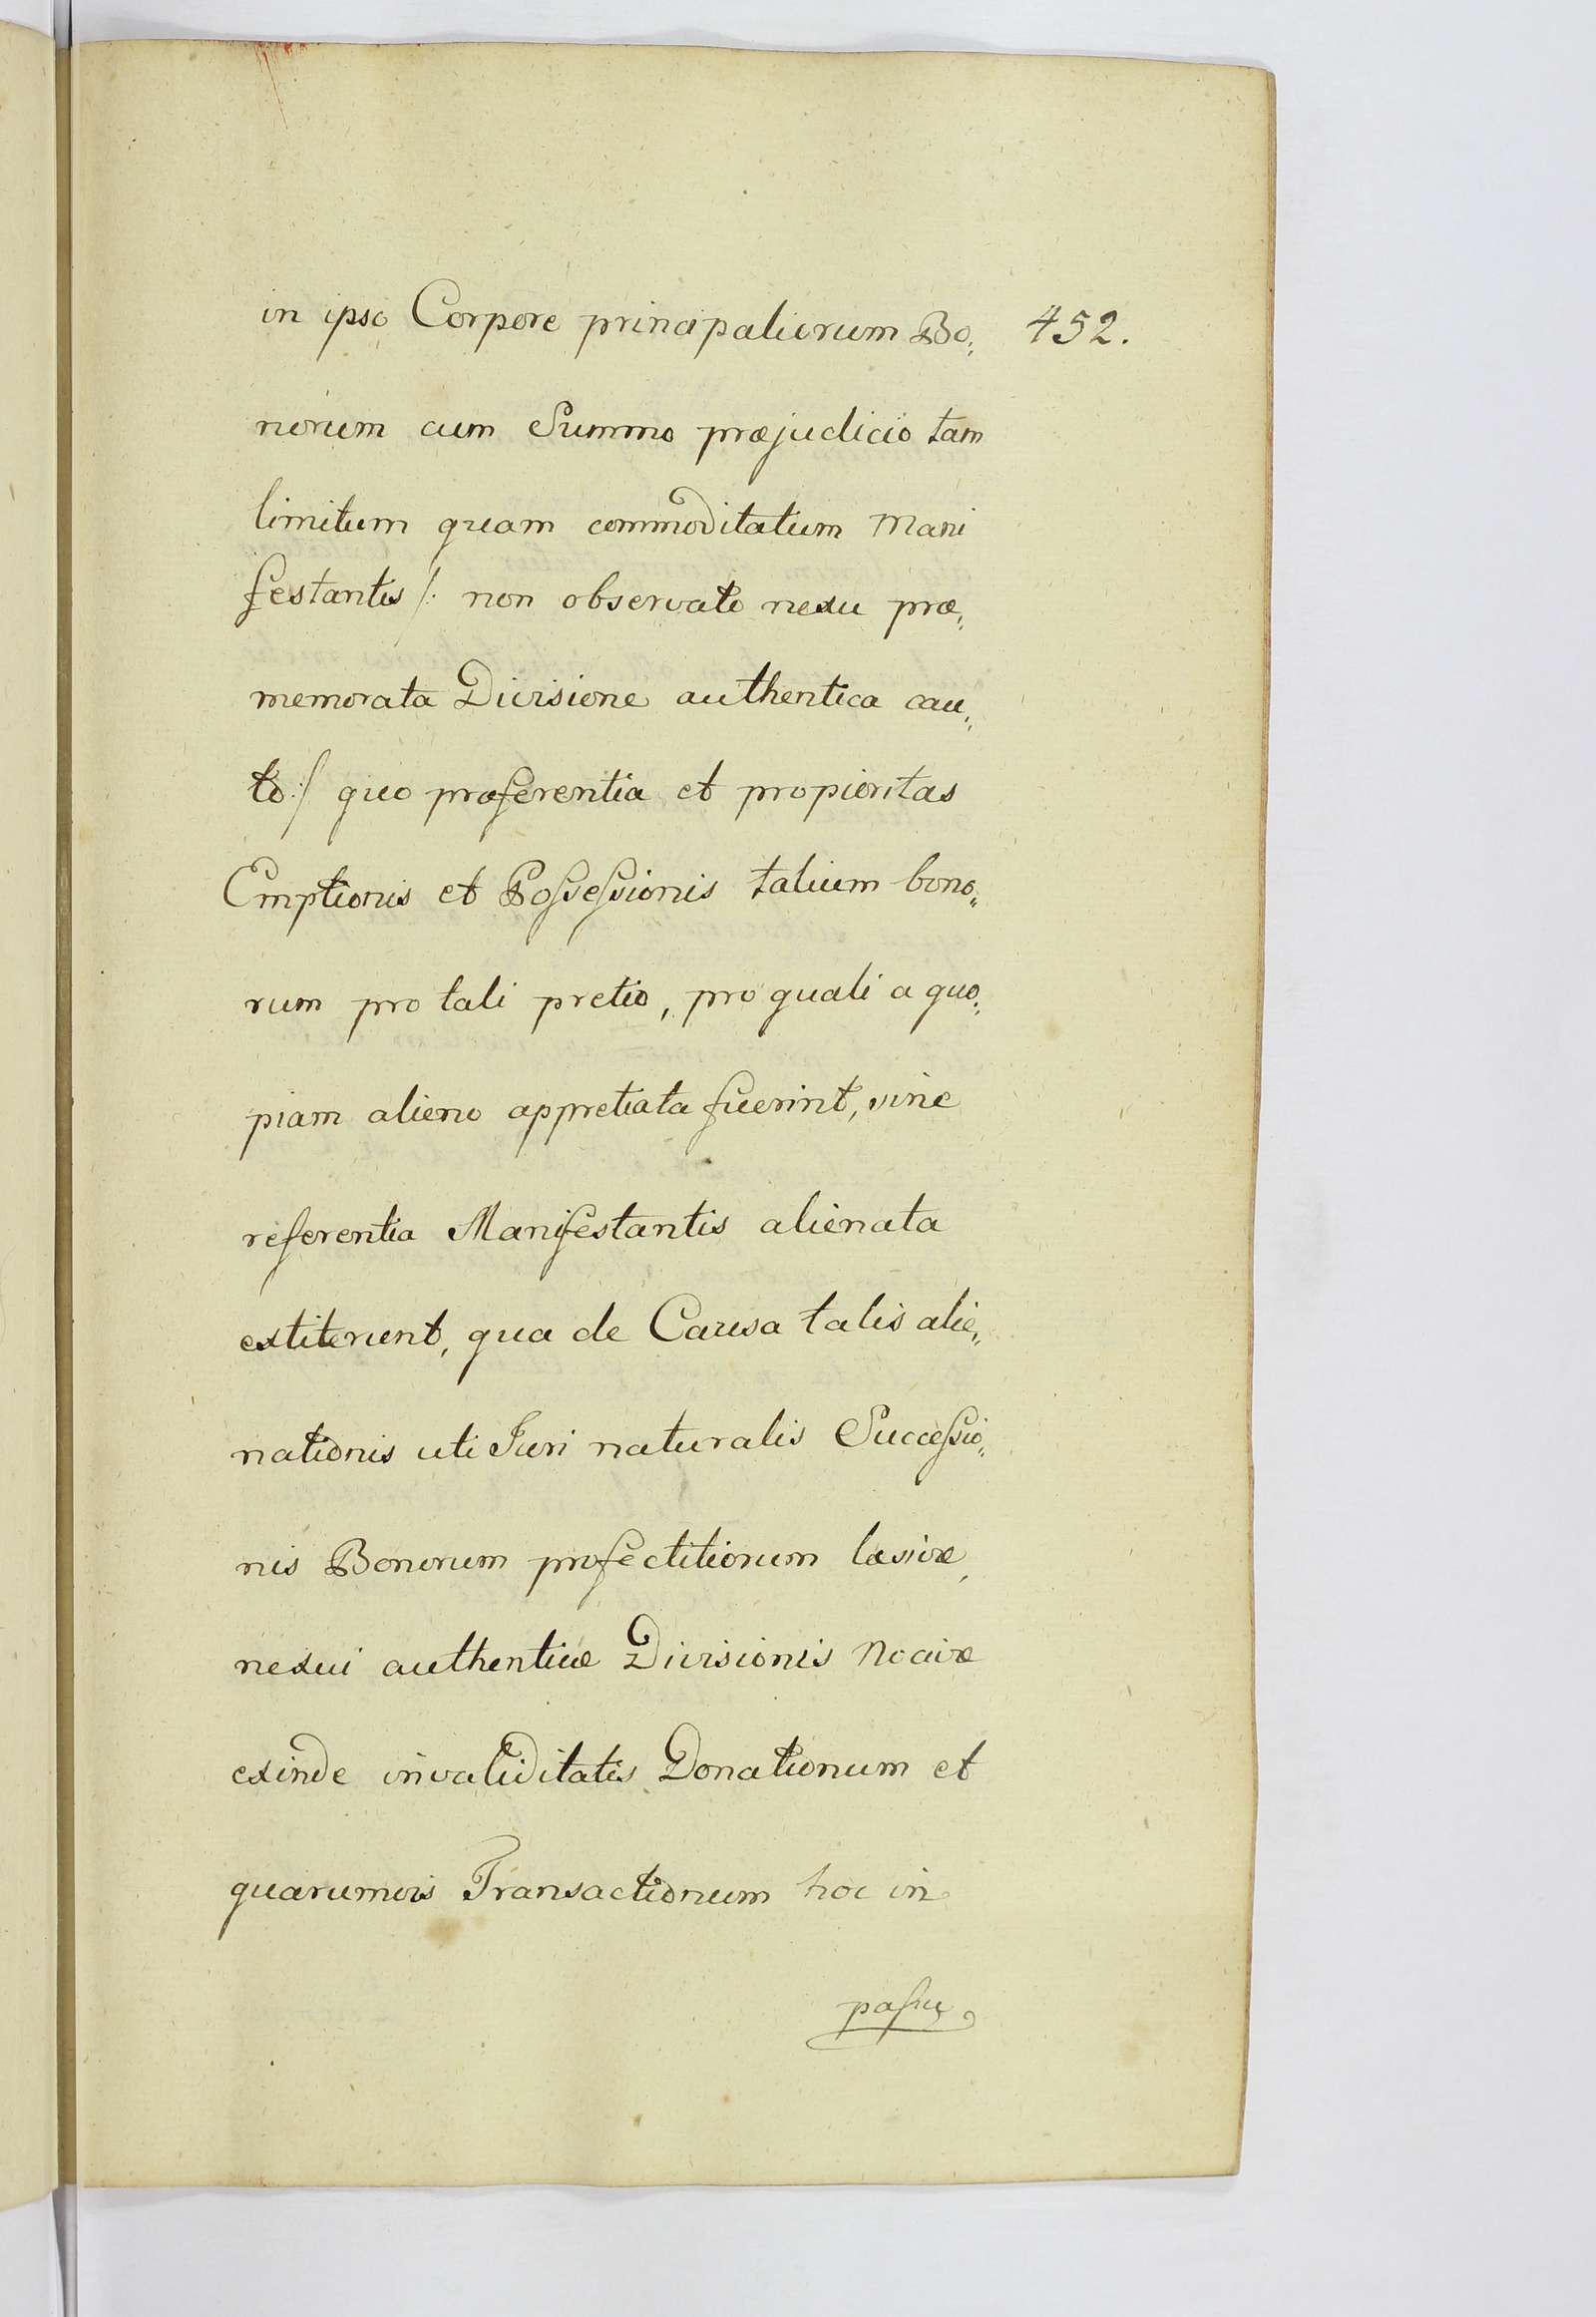 in ipso Corpore principaliorum Bo„ 452.
norum cum Summo præjudicio tam
limitum quam commoditatum Mani
festantis /: non observato nexu præ„
memorata Divisione authentica cau„
to :/ quo præferentia et propioritas
Emptionis et Possessionis talium bono„
rum pro tali pretio, pro quali a quo„
piam alieno appretiata fuerint, sine
referentia Manifestantis alienata
extiterunt, qua de Causa talis alie„
nationis uti Juri naturalis Successio„
nis Bonorum profectitiorum læsivæ,
nexui authenticæ Divisionis nocivæ
exinde invaliditatis Donationum et
quarumvis Transactionum hoc in
passu